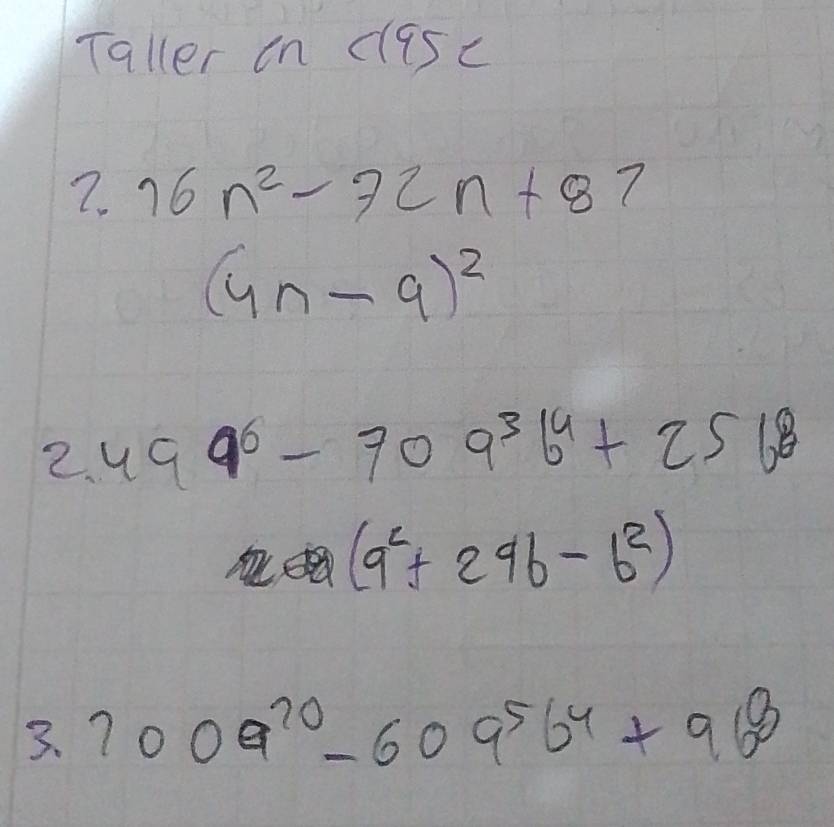 Taller en clase
1. 16n² - 72n + 81
(4n - 9)²
2. 49a⁶ - 70a³b⁴ + 25b⁸
(a² + 2ab - b²)
3. 100a¹⁰ - 60a⁵b⁴ + 9b⁸